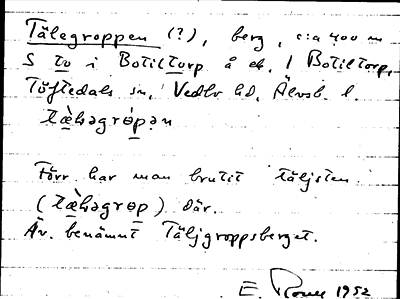 Tälegroppen (?), berg, c:a 400 m
S to i Botiltorp å ek. 1 Botiltorp,
Töftedals sn, Vedbo hd, Älvsb. l.
tæ̀ləgrópən
Förr har man brutit täljsten
(tæ̀ləgrɵp) där.
Äv. benämnt Täljgroppsberget.
E. 1952